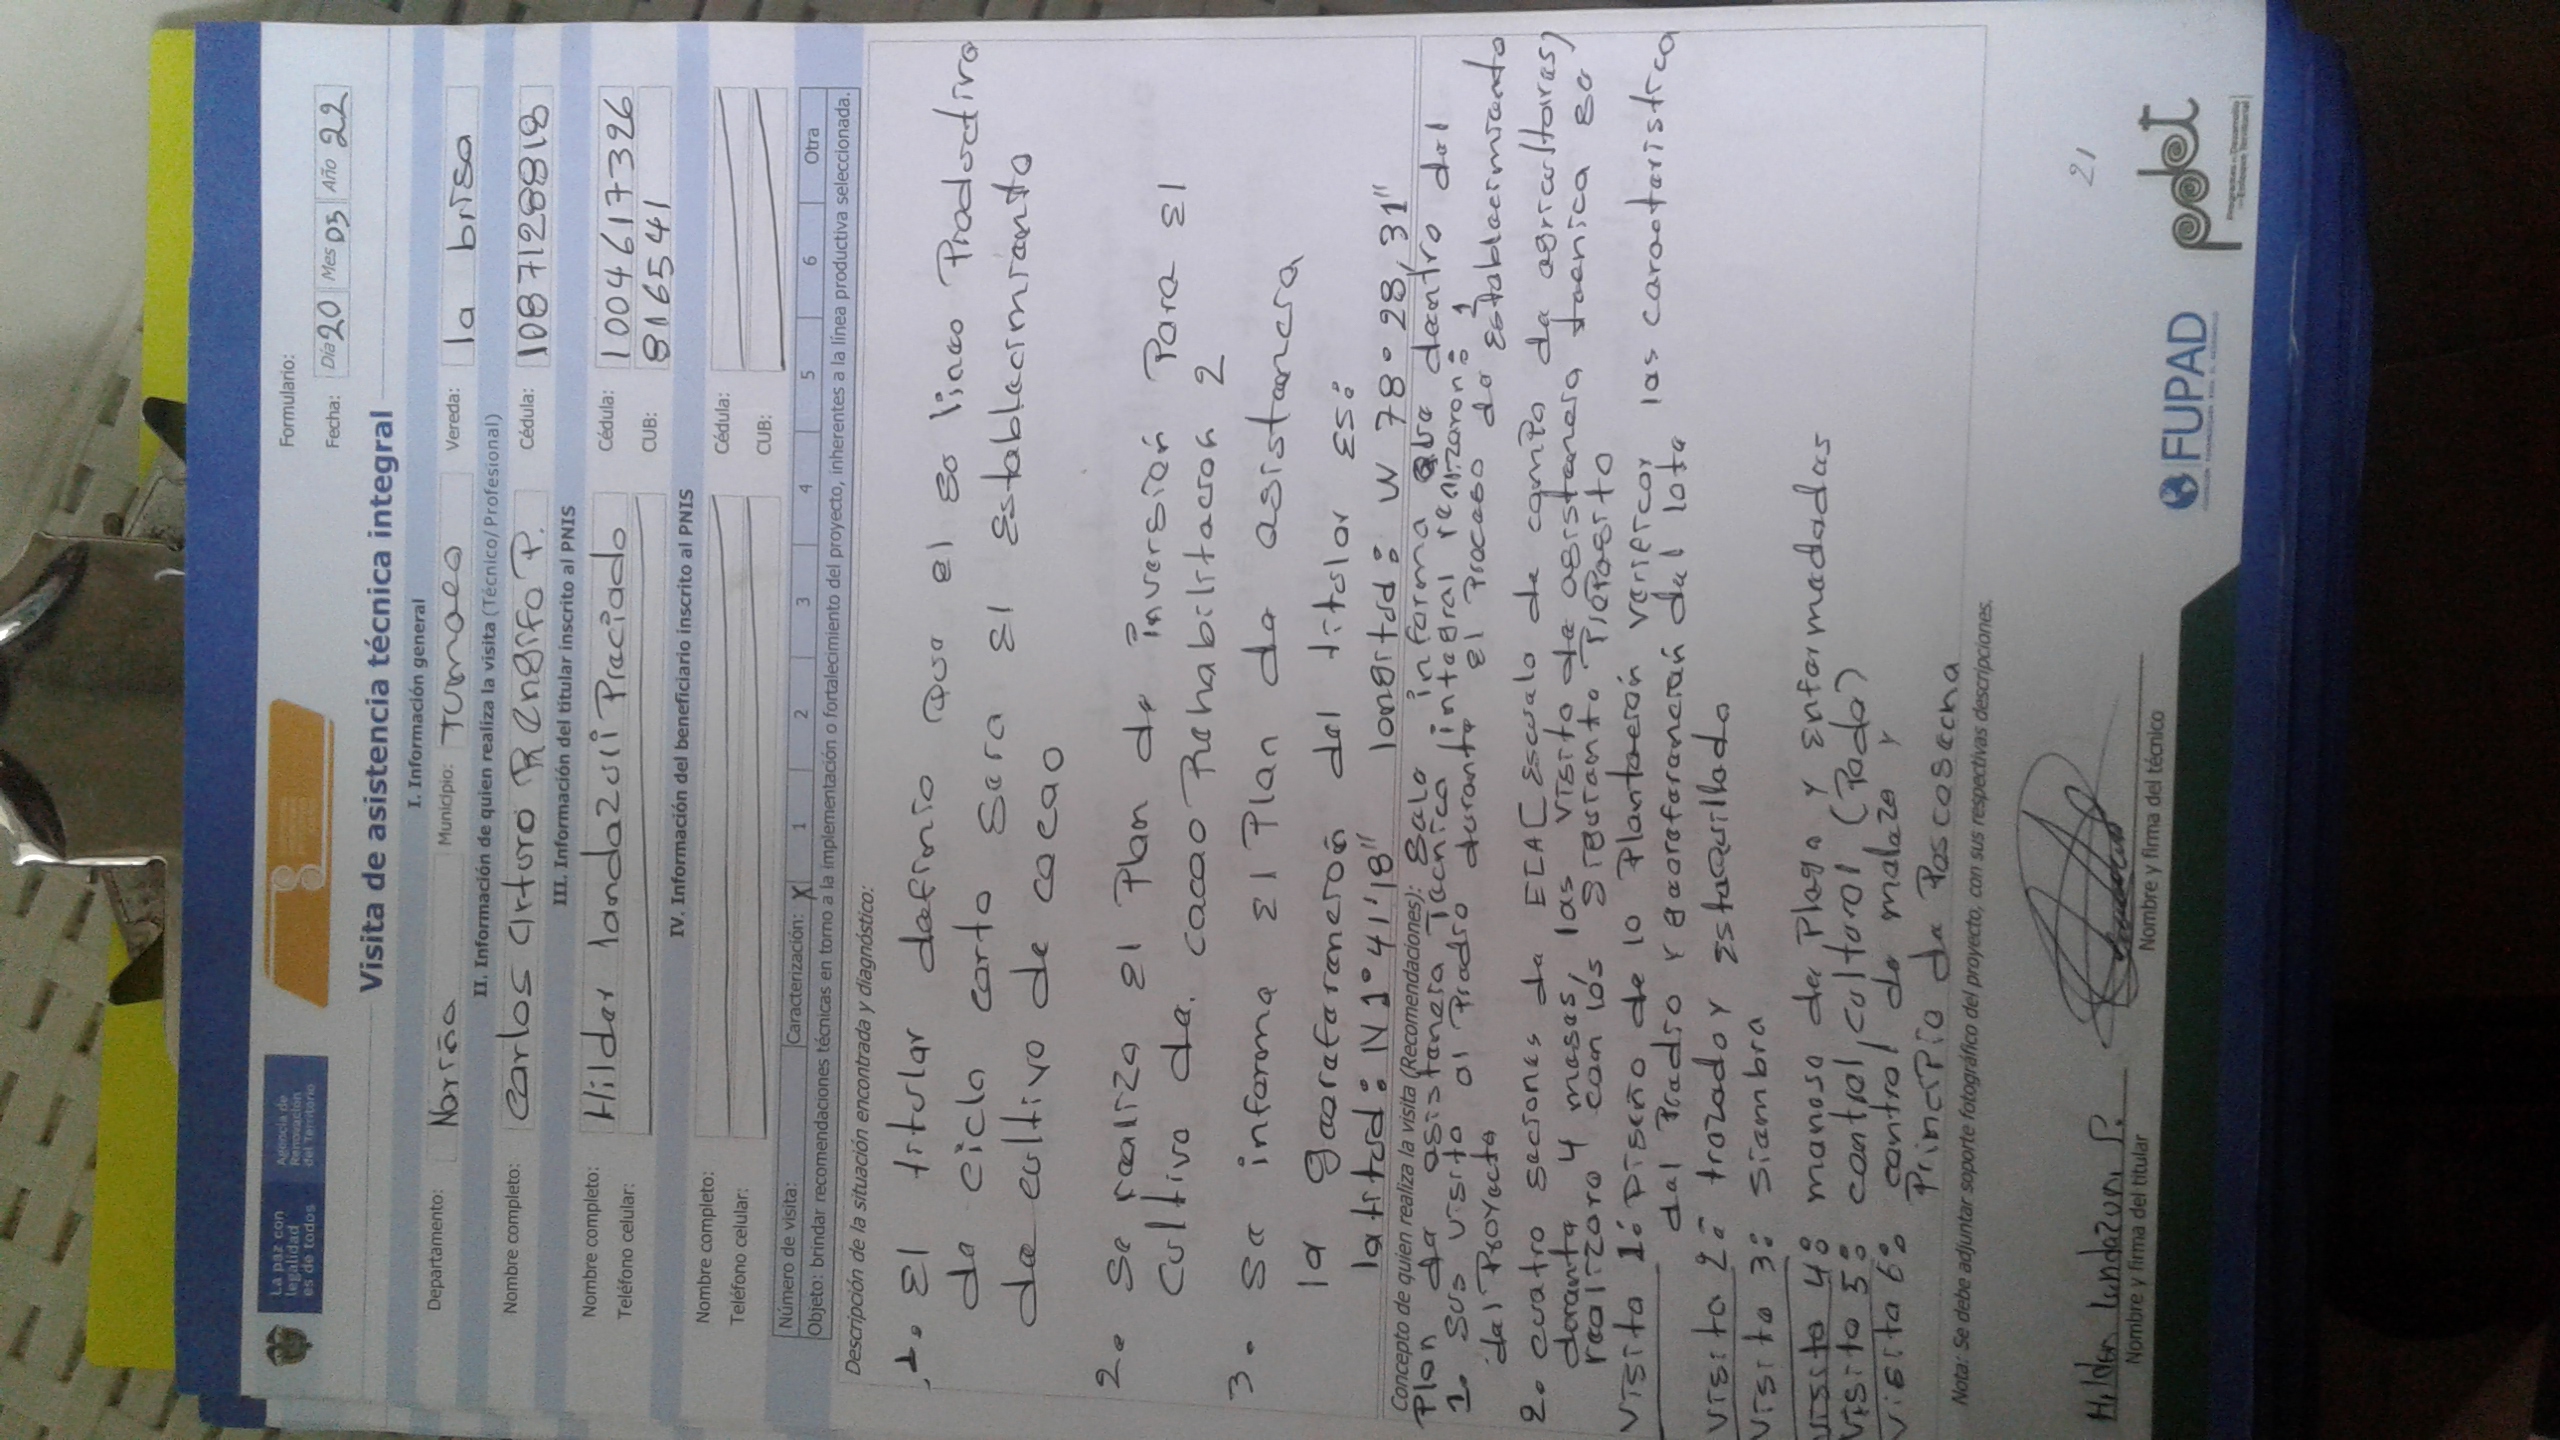 La paz con
legalidad
es de todos
Agencia de
Renovación
del Territorio
Formulario:
Fecha: Día 20 Mes 05 Año 22
Visita de asistencia técnica integral
I. Información general
Departamento: Nariño Municipio: Tumaco Vereda: la brisa
II. Información de quien realiza la visita (Técnico/Profesional)
Nombre completo: Carlos Arturo Rengifo P. Cédula: 1087128818
III. Información del titular inscrito al PNIS
Nombre completo: Hilder landazuri Preciado Cédula: 1004617326
Teléfono celular: CUB: 816541
IV. Información del beneficiario inscrito al PNIS
Nombre completo: Cédula:
Teléfono celular: CUB:
Número de visita: Caracterización: X 1 2 3 4 5 6 Otra
Objeto: brindar recomendaciones técnicas en torno a la implementación o fortalecimiento del proyecto, inherentes a la línea productiva seleccionada.
Descripción de la situación encontrada y diagnóstico:
1. El titular definio que el so linea Productiva
de ciclo corto sera el Establecimiento
de cultivo de cacao
2. Se realiza el Plan de inversión Para el
cultivo de. cacao Rehabilitacion 2
3. Se informa el Plan de asistencia
la georeferención del titular es:
latitud: N 1° 41' 18" longitud: W 78° 28, 31"
Concepto de quien realiza la visita (Recomendaciones): Sele informa que dentro del
Plan de asistencia Tecnica integral realizaron:
1. Sus visita al Predio durante el Proceso de Establecimiento
del Proyecto
2. cuatro seciones de ECA [Escuela de campo de agricultores]
durante 4 meses las visita de asistencia tecnica se
realizara con los siguiente Proposito
Visita 1: Diseño de la Plantación verificar las caracteristica
del Predio y georeferención del lote
Visita 2: trazado y Estaquillado
Visita 3: Siembra
Visita 4: manejo de Plaga y Enfermedades
Visita 5: control cultural (Poda)
Visita 6: control de maleza y
Principio de Poscosecha
Nota: Se debe adjuntar soporte fotográfico del proyecto, con sus respectivas descripciones.
Hilder landazuri P.
Nombre y firma del titular
Nombre y firma del técnico
21
FUPAD
pdet
Programas de Desarrollo
con Enfoque Territorial